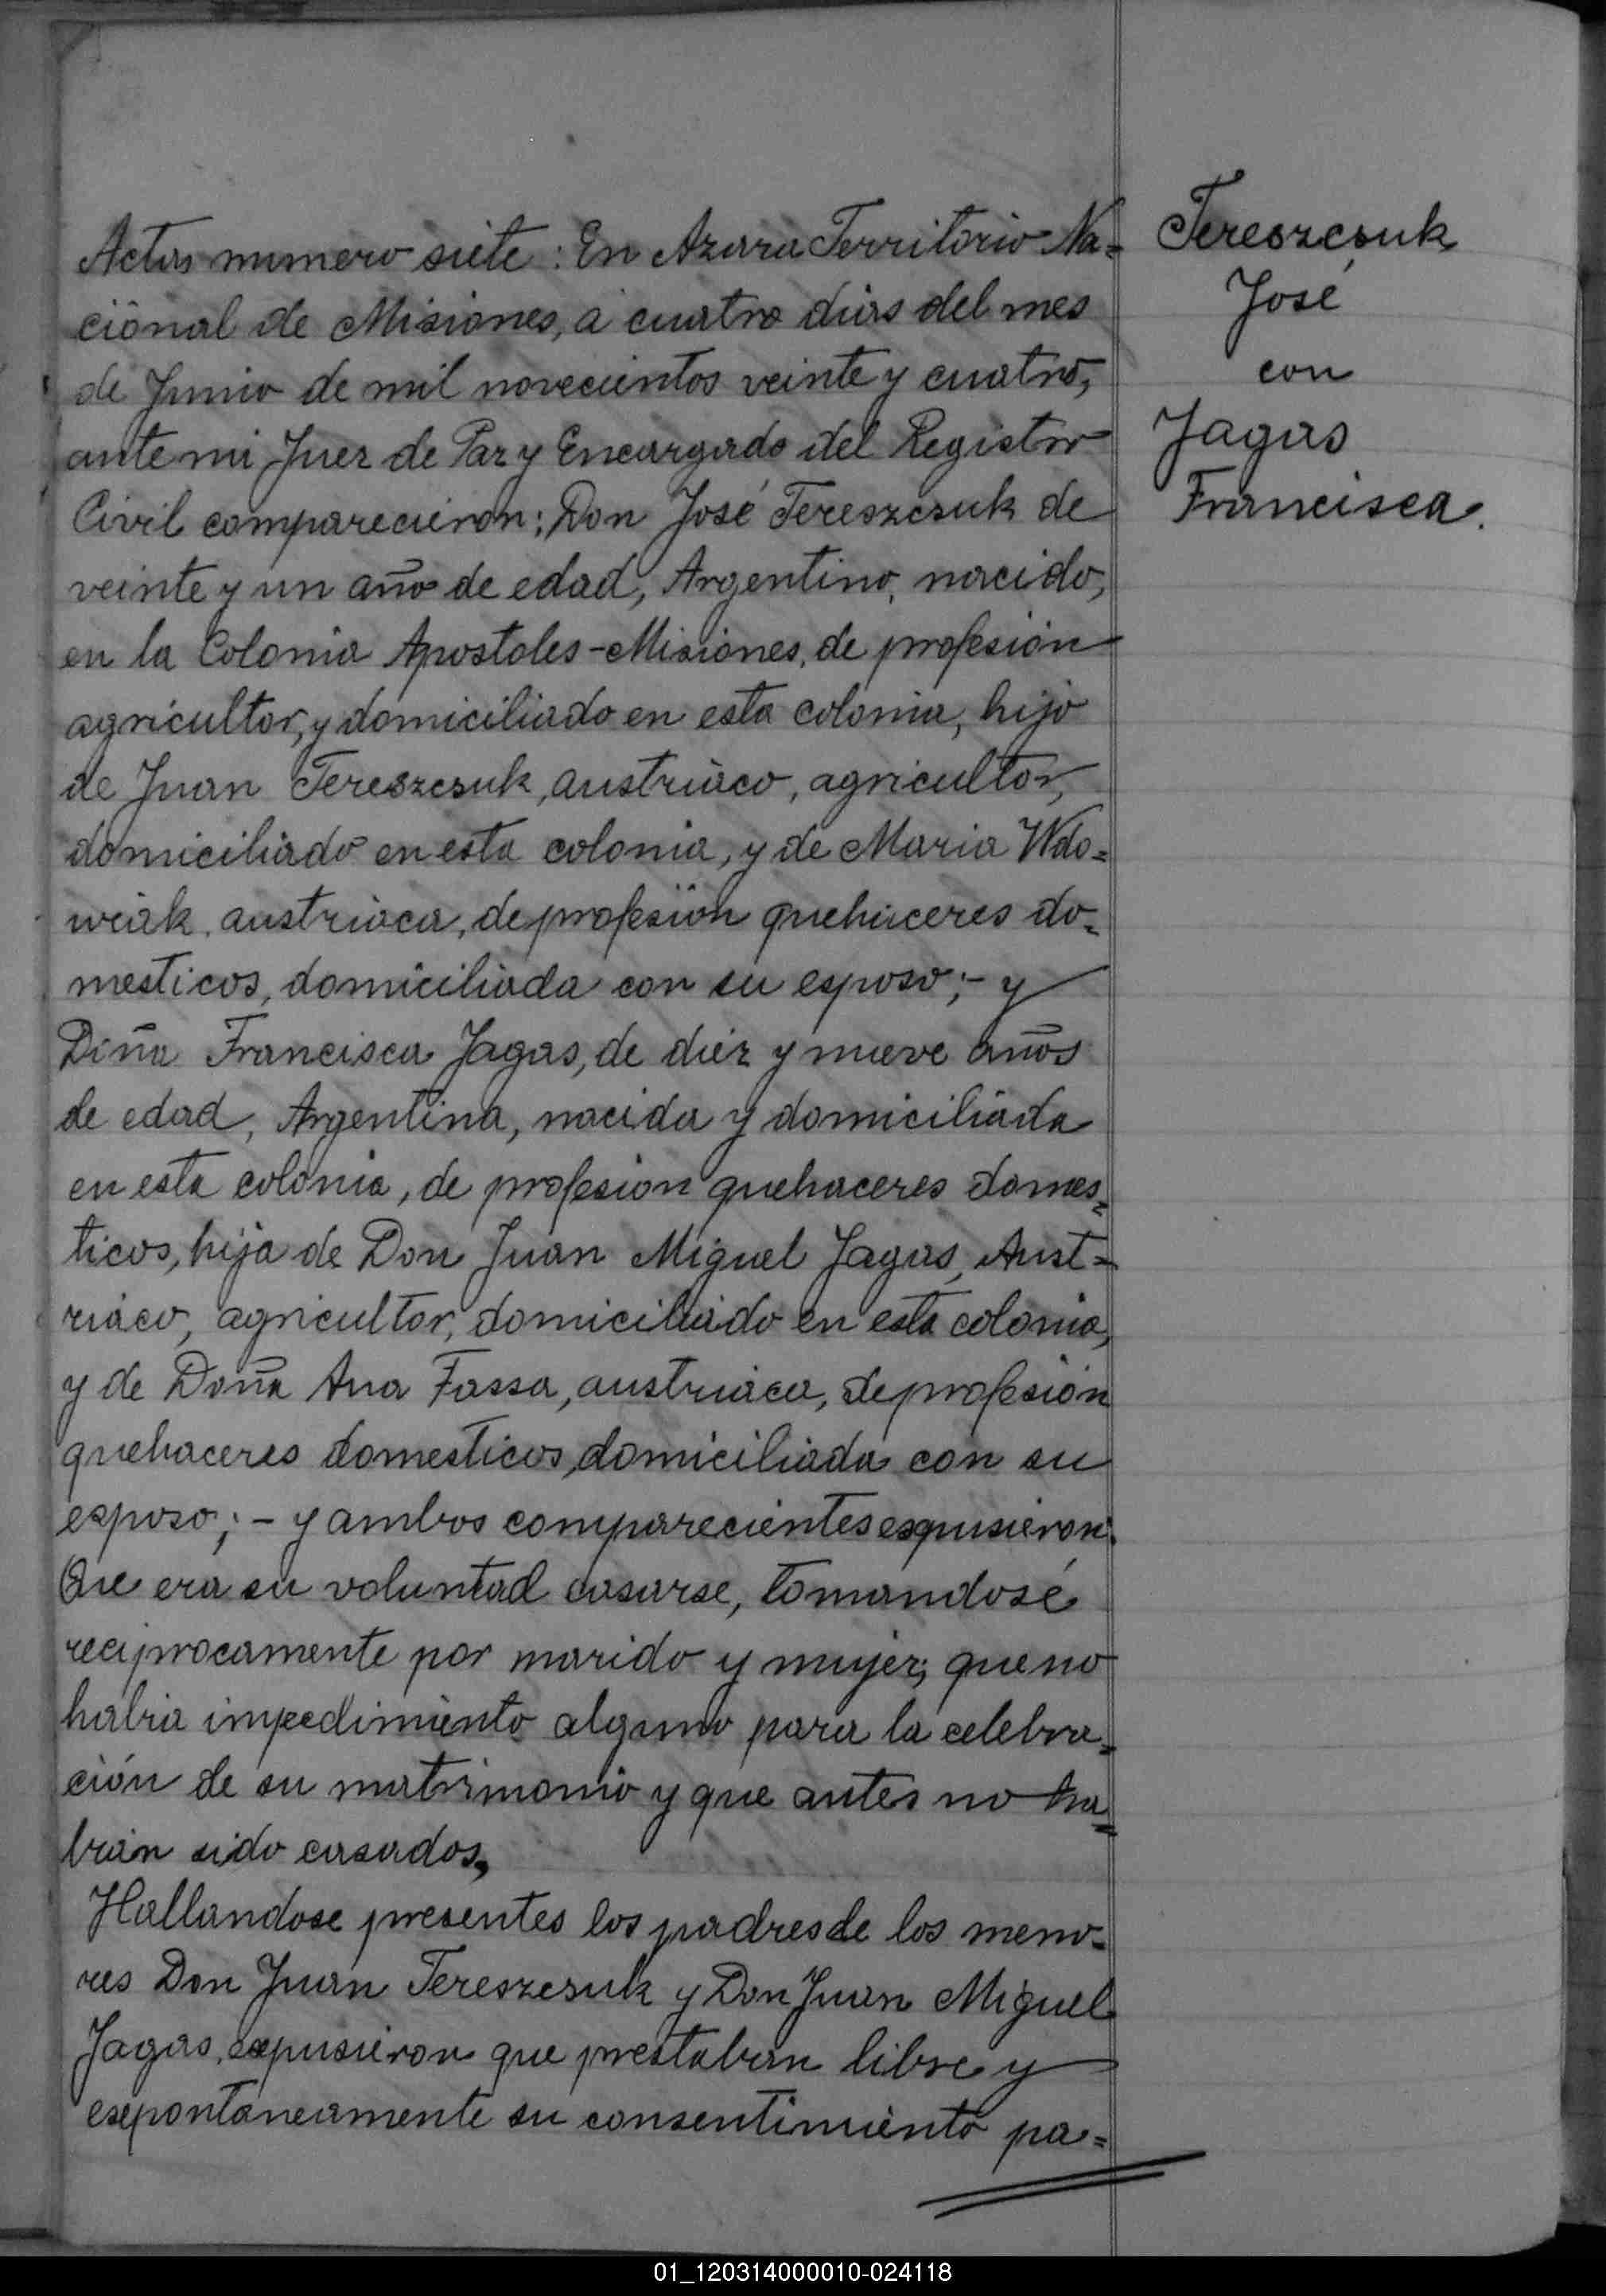 Actas numero siete: En Azara Territorio Na=
cional de Misiones, a cuatro dias del mes
de Junio de mil novecientos veinte y cuatro,
ante mi Juez de Paz y Encargado del Registro
Civil comparecieron: Don José Tereszcsuk de
veinte y un año de edad, Argentino, nacido,
en la Colonia Apostoles-Misiones, de profesión
agricultor, y domiciliado en esta colonia, hijo
de Juan Tereszcsuk, austriaco, agricultor,
domiciliado en esta colonia, y de Maria Wdo=
wiak, austriaca, de profesion quehaceres do=
mesticos, domiciliada con su esposo;- y
Diña Francisca Jagas, de diez y nueve años
de edad, Argentina, nacida y domiciliada
en esta colonia, de profesion quehaceres domes=
ticos, hija de Don Juan Miguel Jagas, Aust=
riaco, agricultor, domiciliado en esta colonia,
y de Doña Ana Fassa, austriaca, de profesión
quehaceres domesticos, domiciliada con su
esposo;- y ambos comparecientes esqusieron:
Que era su voluntad casarse, tomandosé
reciprocamente por marido y mujer; que no
habia impedimiento alguno para la celebra=
ción de su matrimonio y que antes no ha=
brian sido casados,
Hallandose presentes los padres de los meno=
res Don Juan Tereszcsuk y Don Juan Miguel
Jagas, expusieron que prestaban libre y
esepontaneamente su consentimiento pa=
Tereszcsuk
José
con
Jagas
Francisca.
01_120314000010-024118